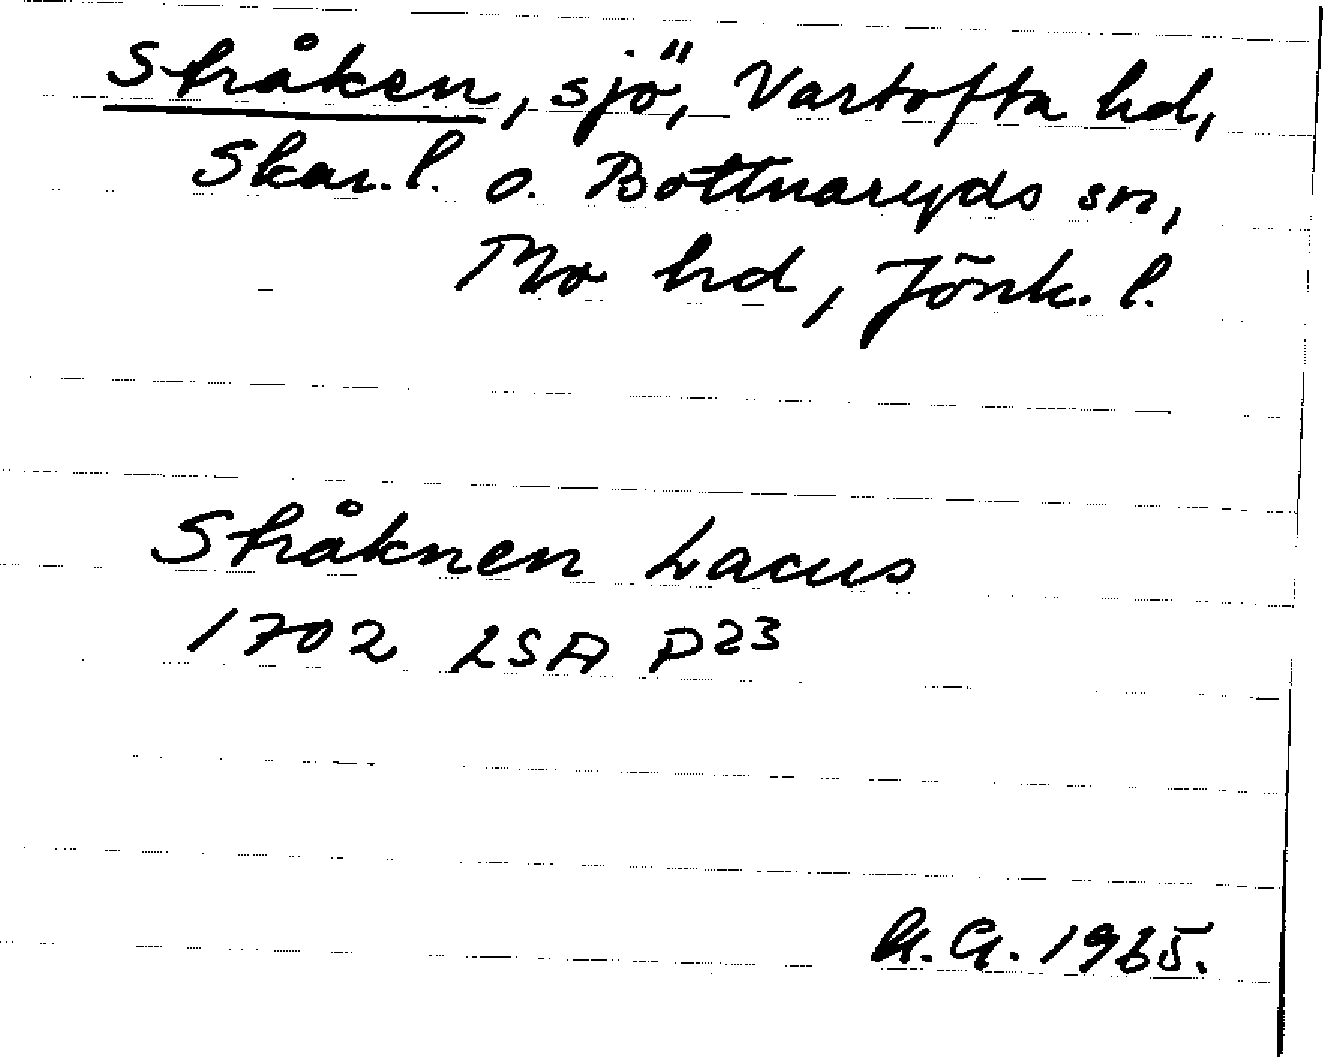 Stråken, sjö, Vartofta hd,
Skar. l. o. Bottnaryds sn,
Mo hd, Jönk. l.
Stråknen Lacus
1702 LSA P23
G. 1965.